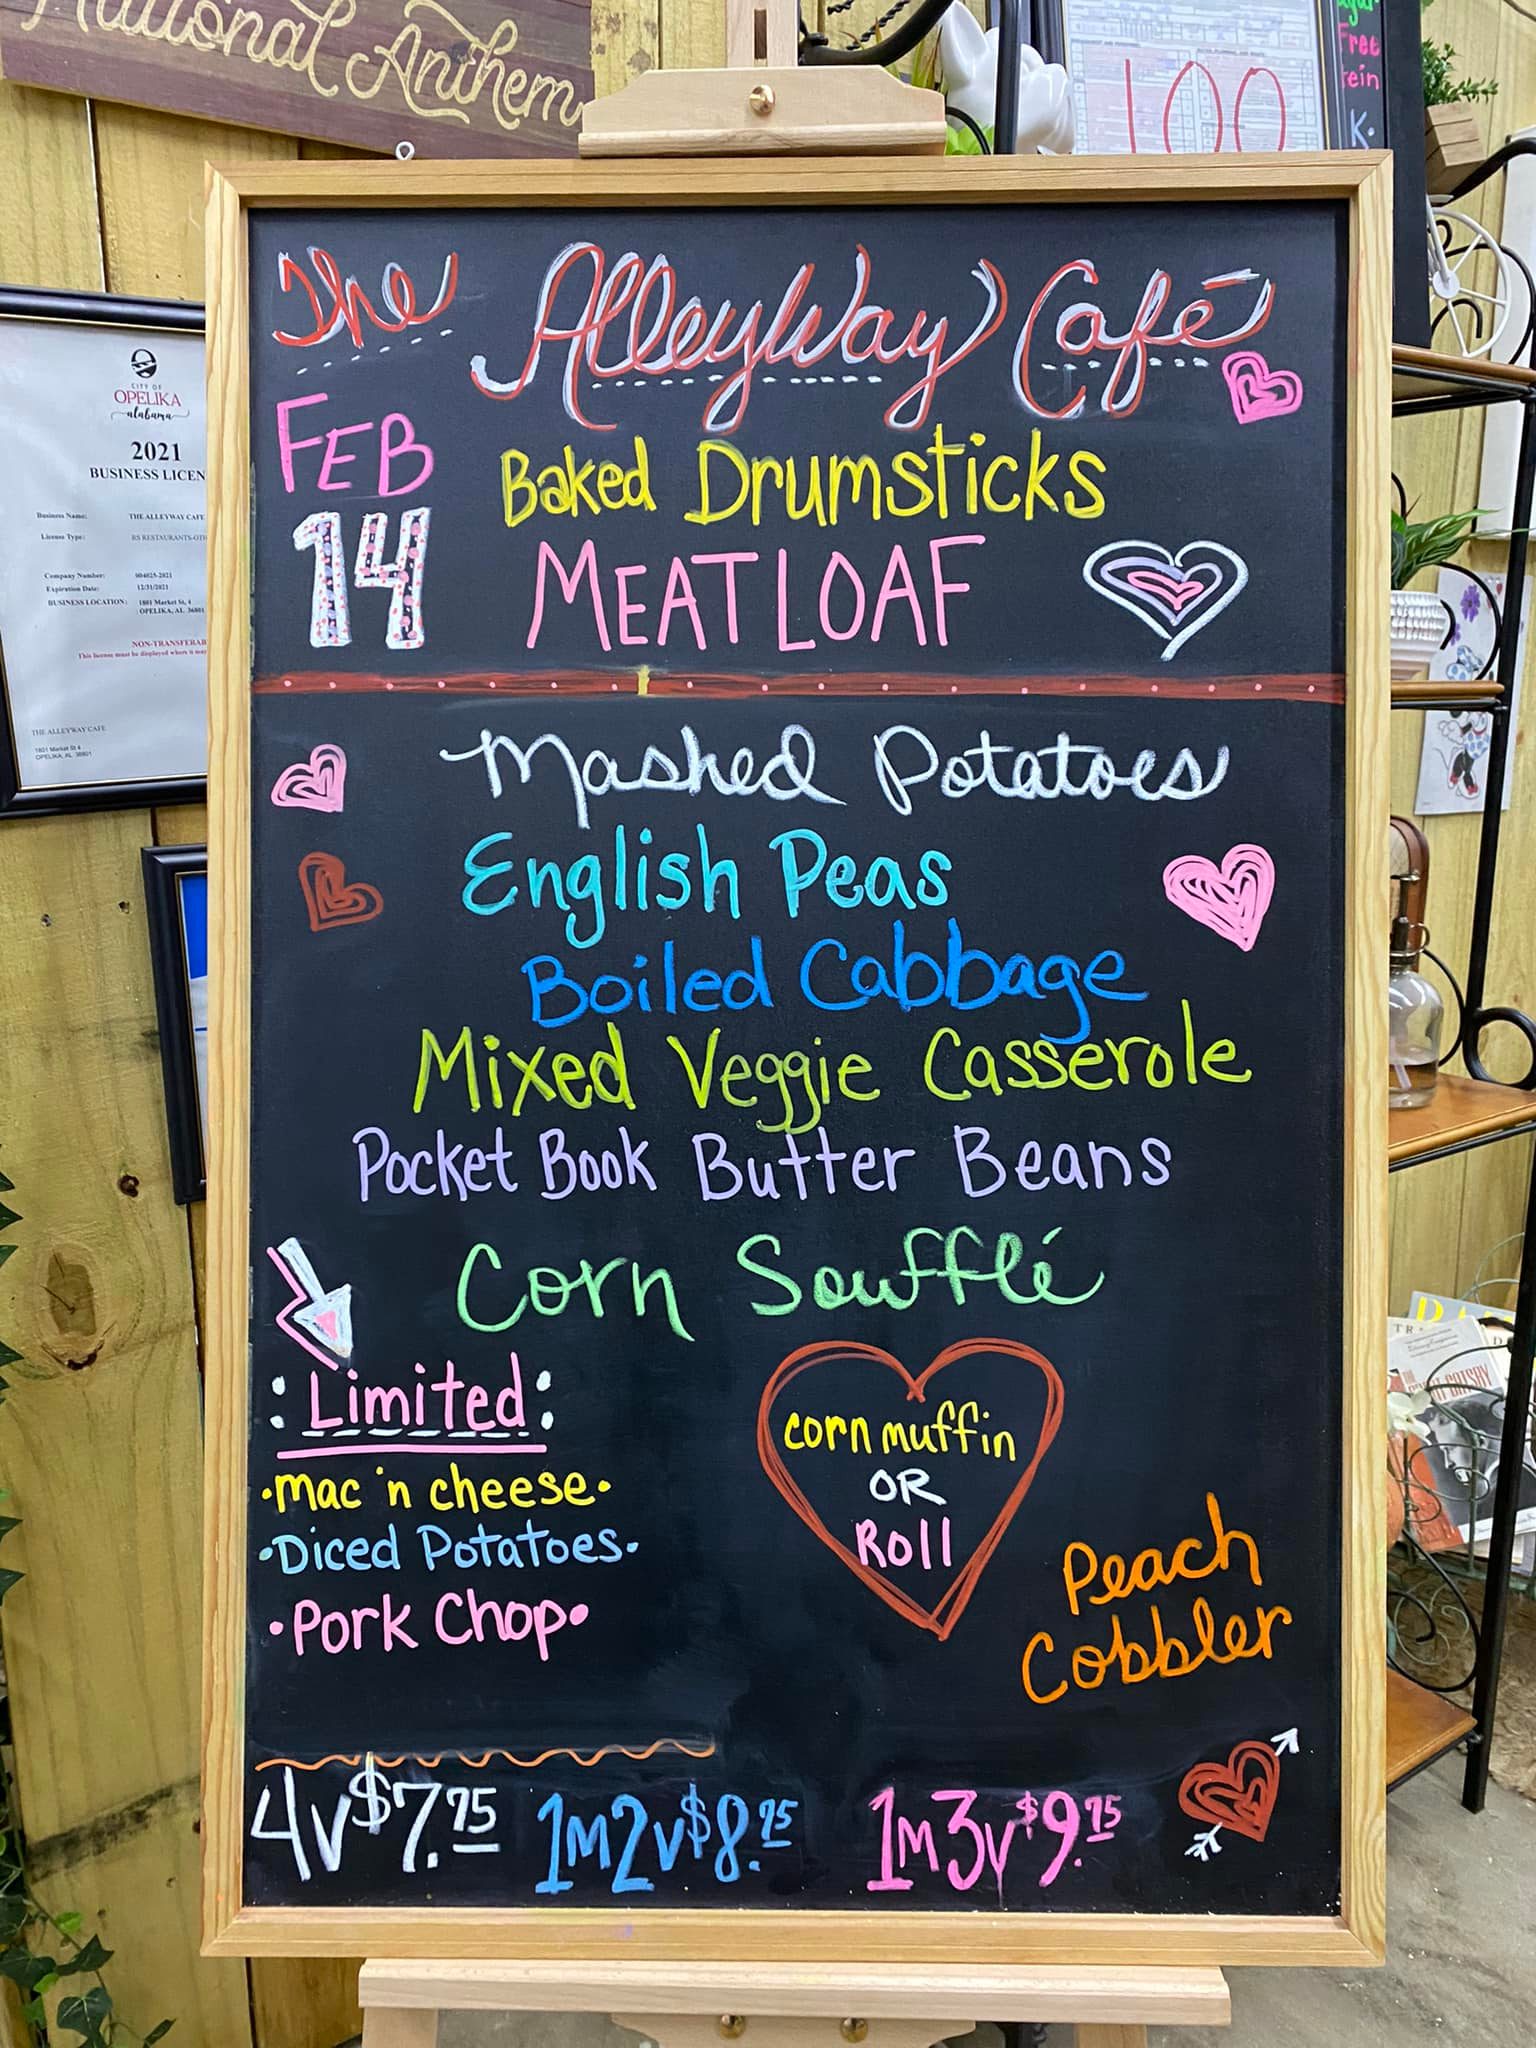 National Anthem
100
ugar
Free
K.
CITY OF
OPELIKA
alabama
2021
BUSINESS LICEN
Business Name: THE ALLEYWAY CAFE
License Type: RS RESTAURANTS-OTH
Company Number: 004025-2021
Expiration Date: 12/31/2021
BUSINESS LOCATION: 1801 Market St, 4
OPELIKA, AL 36801
NON-TRANSFERAB
This license must be displayed where it may
THE ALLEYWAY CAFE
1801 Market St 4
OPELIKA, AL 36801
The AlleyWay Café
FEB
14
Baked Drumsticks
MEATLOAF
Mashed Potatoes
English Peas
Boiled Cabbage
Mixed Veggie Casserole
Pocket Book Butter Beans
Corn Soufflé
: Limited :
•mac 'n cheese•
•Diced Potatoes•
•Pork Chop•
corn muffin
OR
Roll
Peach
Cobbler
4v $7.75 1m2v $8.75 1m3v $9.75